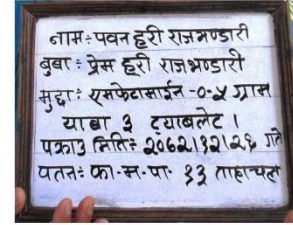 नाम ÷ पवन हरी राजभण्डारी
बुबा ÷ प्रेम हरी राजभण्डारी
मुद्दा ÷ एमफेटामाईन -०-५ ग्राम
याबा ३ ट्याबलेट ।
पक्राउ मिति ÷ २०६२।१२।२६ गते
वतन ÷ का.म.पा. १३ ताहाचल